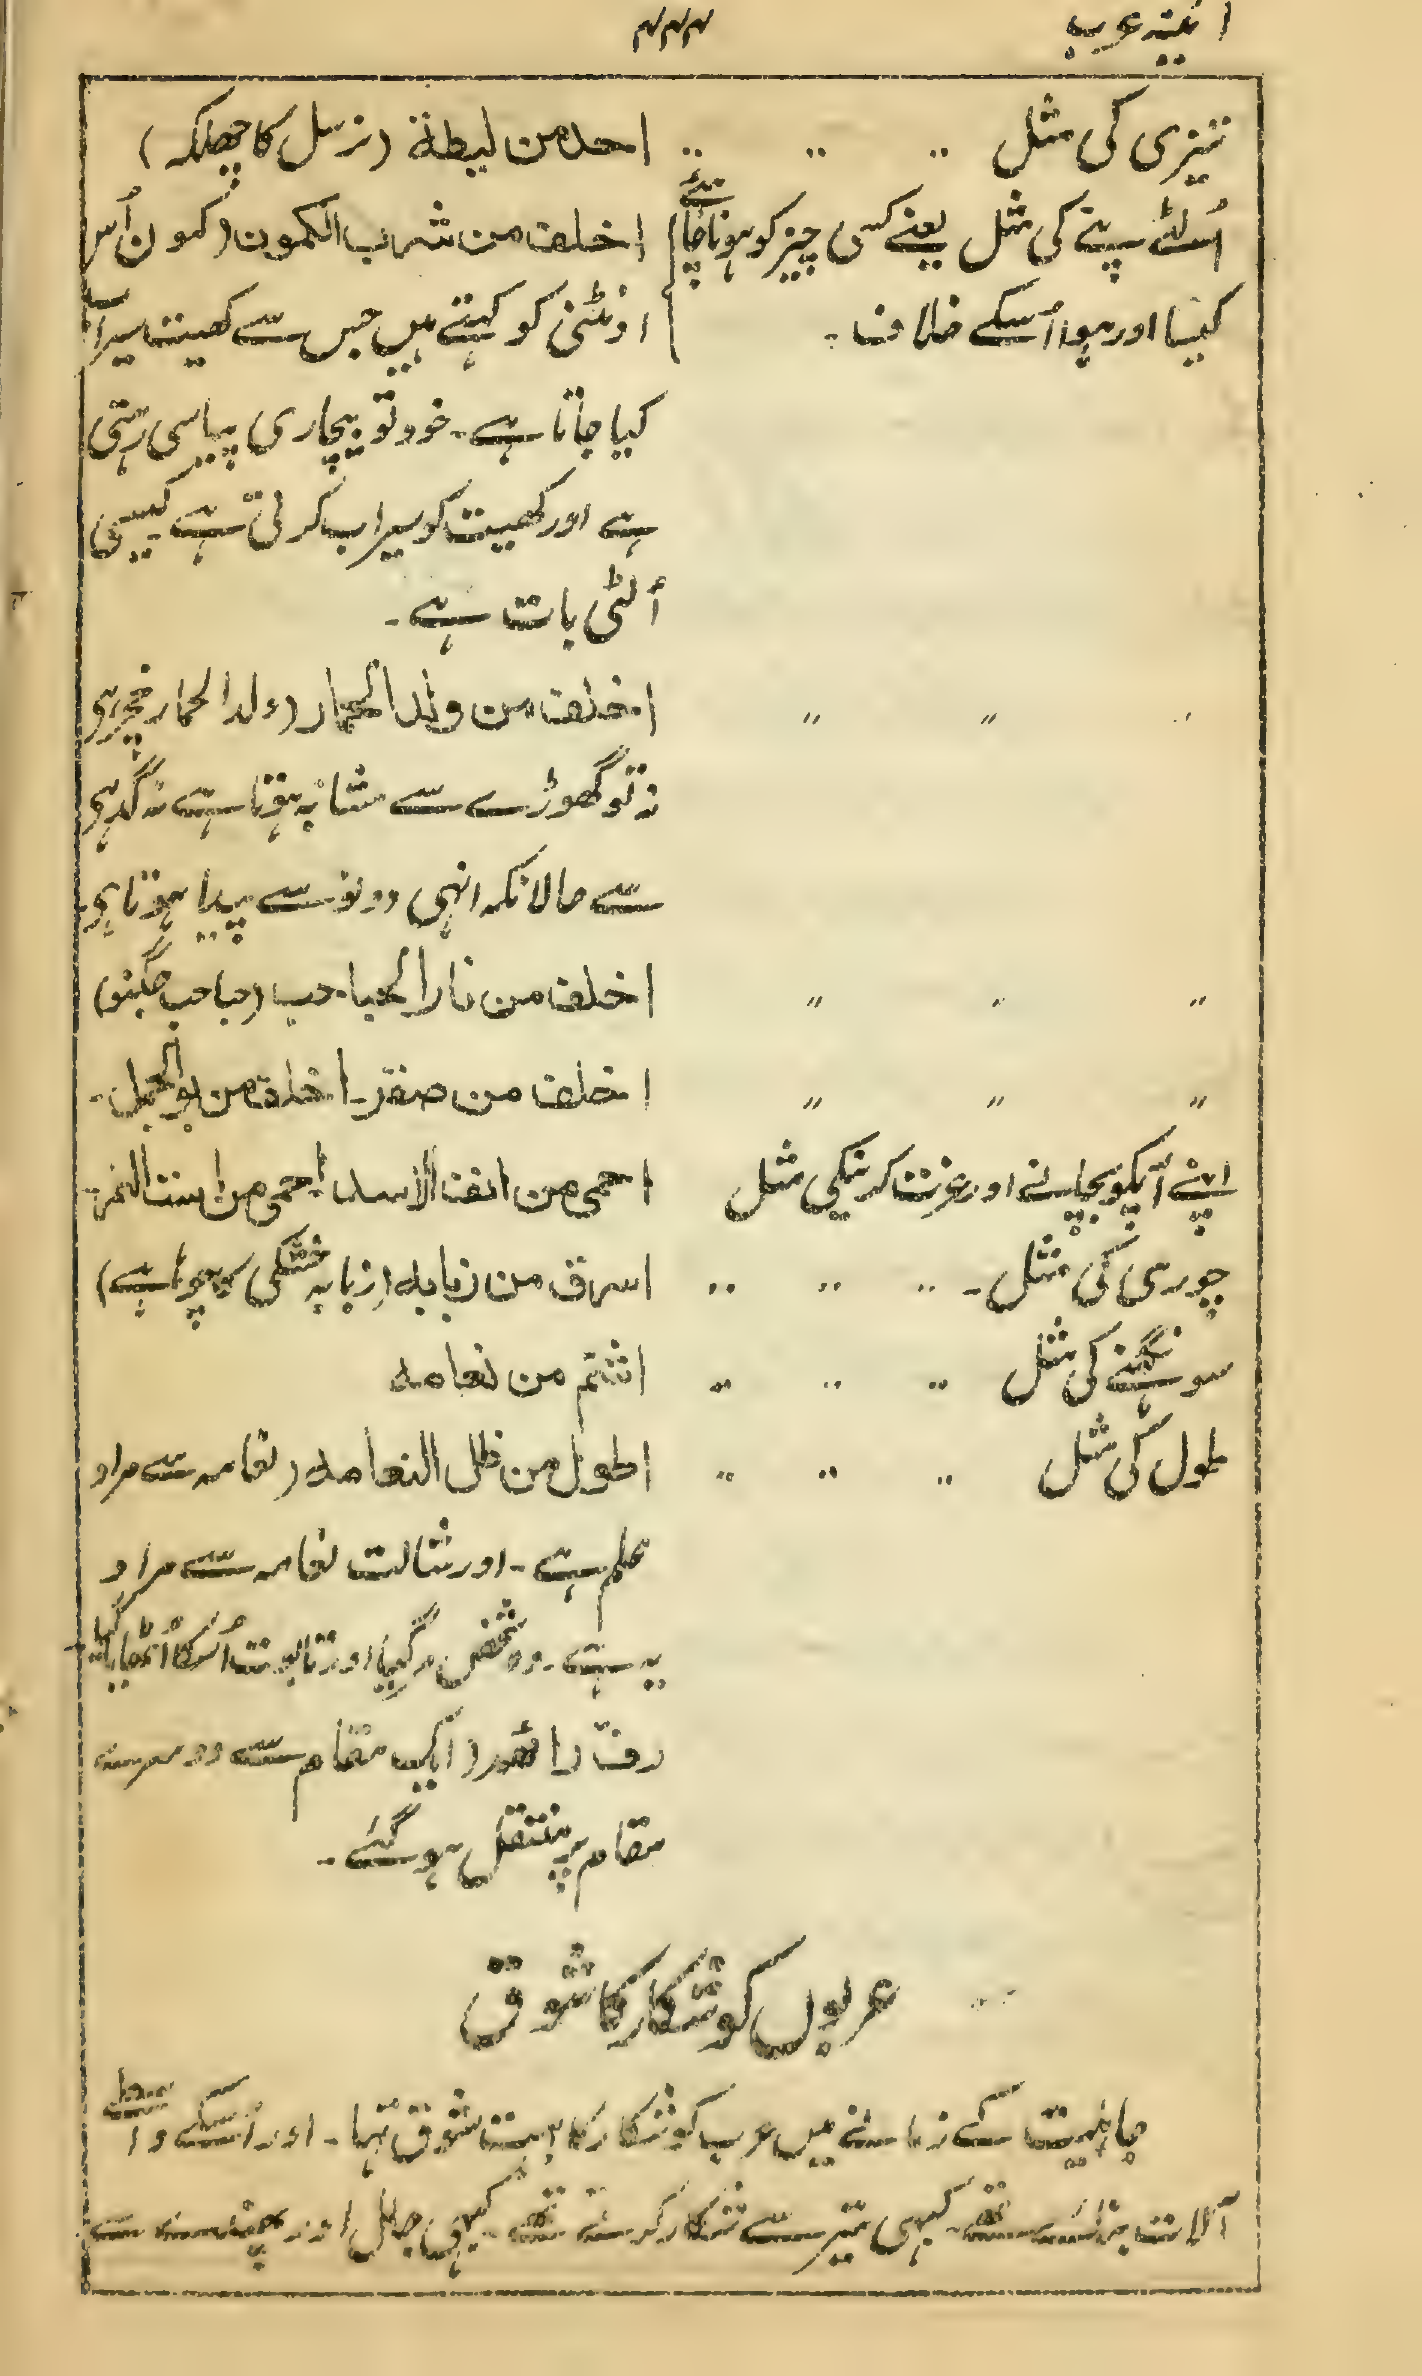 آئینہ عرب ۴۴۴
تیزی کی مثل .. .. .. احد من لیطة (نرسل کا چھلکہ)
اُلٹے پنے کی مثل یعنے کسی چیز کو ہونا چاہئے اخلف من شرب الکمون (کمون اُس
کیسا اور ہوا اُسکے خلاف ۔ اونٹنی کو کہتے ہیں جس سے کھیت سیراب
کیا جاتا ہے ۔ خود تو بیچاری پیاسی رہتی
ہے اور کھیت کو سیراب کرتی ہے کیسی
اُلٹی بات ہے ۔
〃 〃 اخلف من ولد الحمار (ولد الحمار خچر ہی
نہ تو گھوڑے سے مشابہ ہوتا ہے نہ گدہی
سے حالانکہ انہی دونو سے پیدا ہوتا ہی
〃 〃 〃 اخلف من نار الحباحب (حباحب جگنو)
〃 〃 〃 اخلف من صقر ۔ اخلف من بول الجمل ۔
اپنے آپکو بچانے اور عزت کرنیکی مثل احمی من انف الاسد احمی من است النمر
چوری کی مثل ۔ .. .. .. اسرق من زبابه (زبابہ خشکی کا چوہا ہے)
سونگہنے کی مثل .. .. .. اشتم من نعامه
طول کی مثل .. .. .. اطول من ظل النعامه (نعامہ سے مراد
علم ہے ۔ اور شالت نعامہ سے مراد
یہ ہے ۔ وہ شخص مرگیا اور تابوت اُسکا اُٹھایا گیا
ایک مقام سے دوسرے
مقام پر منتقل ہو گئے ۔
عربوں کو شکار کا شوق
جاہلیت کے زمانے میں عرب کو شکار کا بہت شوق تہا ۔ اور اُسکے واسطے
آلات تھے ۔ کبہی تیر سے شکار کرتے تھے ۔ کبہی جال اور پھندے سے